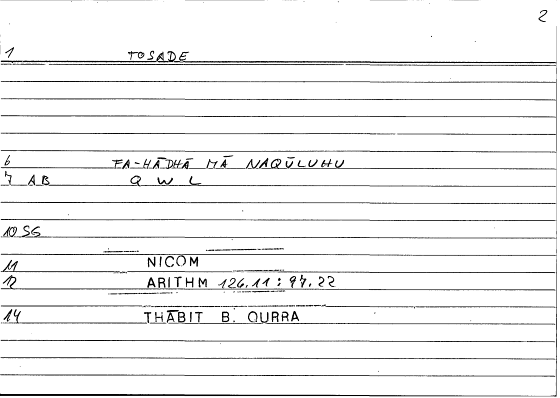 2
1 TOSADE
6 FA-HĀDHĀ MĀ NAQŪLUHU
7 AB Q W L
10 SG
11 NICOM
12 ARITHM 126.11 : 97.22
14 THĀBIT B. QURRA